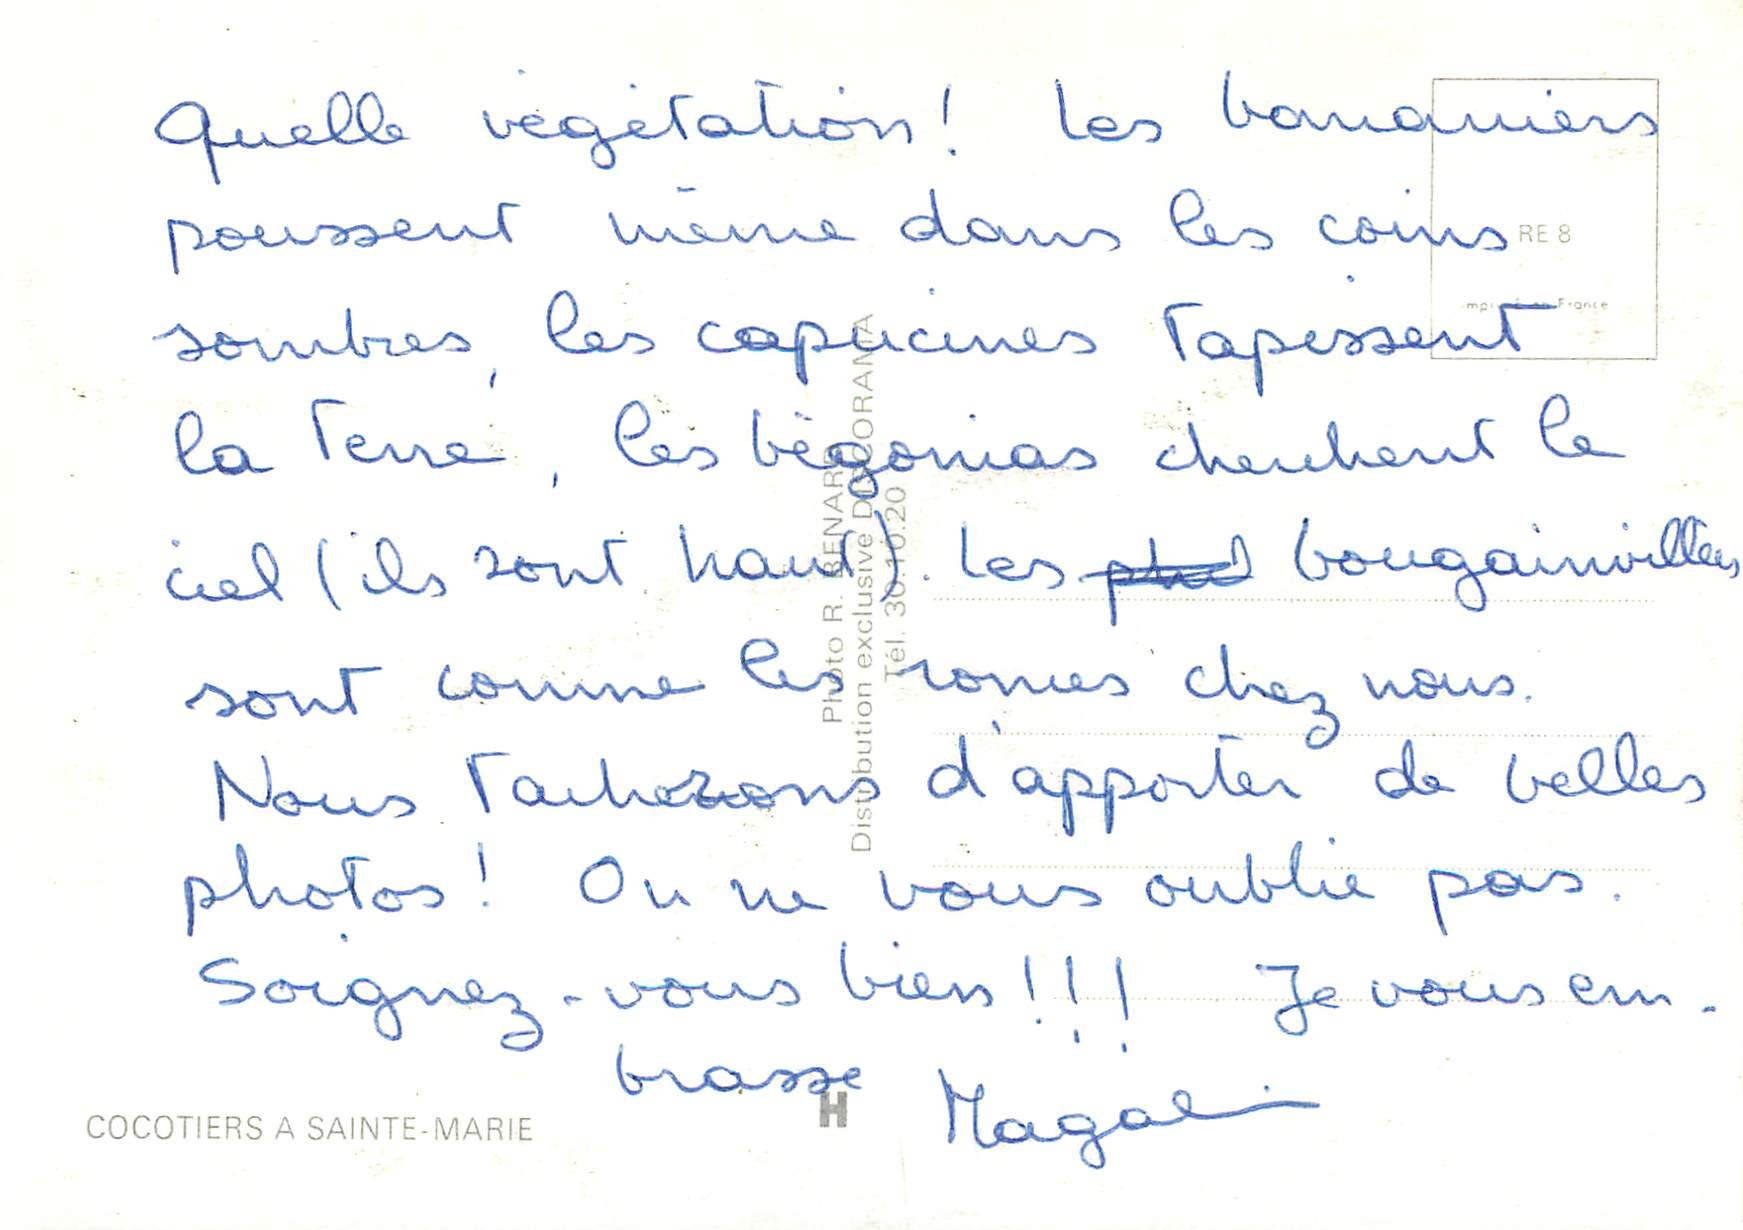 Quelle végétation! Les bananiers
poussent même dans les coins
sombres, les capucines tapissent
la terre, les bégonias cherchent le
ciel (ils sont haut). Les bougainvillées
sont comme les ronces chez nous.
Nous tacherons d'apporter de belles
photos! On ne vous oublie pas.
Soignez-vous bien!!! Je vous em-
brasse Magali
RE 8
Imprimé en France
Photo R. BENARD
Distribution exclusive DISCORAMA
Tél. 30.10.20
H
COCOTIERS A SAINTE-MARIE